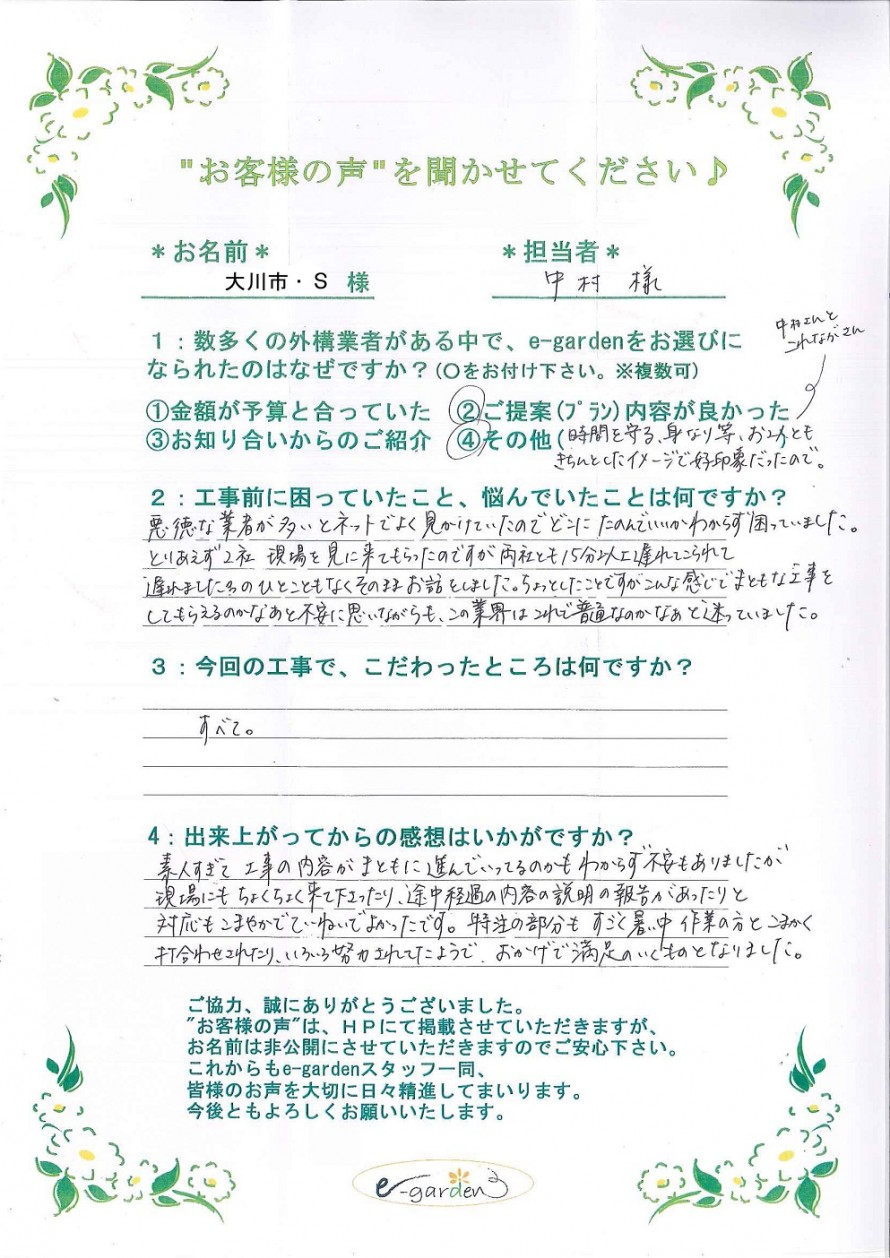 "お客様の声"を聞かせてください♪
＊お名前＊
大川市・S 様
＊担当者＊
中村 様
1：数多くの外構業者がある中で、e-gardenをお選びに
なられたのはなぜですか？(〇をお付け下さい。※複数可)
中村さんと
これながさん
①金額が予算と合っていた ②ご提案(ﾌﾟﾗﾝ)内容が良かった
③お知り合いからのご紹介 ④その他(時間を守る、身なり等、お2人とも
きちんとしたイメージで好印象だったので。
2：工事前に困っていたこと、悩んでいたことは何ですか？
悪徳な業者が多いとネットでよく見かけていたのでどこにたのんでいいかわからず困っていました。
とりあえず2社 現場を見に来てもらったのですが両社とも15分以上遅れてこられて
遅れましたらのひとこともなくそのままお話をしました。ちょっとしたことですがこんな感じでまともな工事を
してもらえるのかなあと不安に思いながらも、この業界はこれで普通なのかなぁと迷っていました。
3：今回の工事で、こだわったところは何ですか？
すべて。
4：出来上がってからの感想はいかがですか？
素人すぎて工事の内容がまともに進んでいってるのかもわからず不安もありましたが
現場にもちょくちょく来て下さったり、途中経過の内容の説明の報告があったりと
対応もこまやかでていねいでよかったです。特注の部分もすごく暑い中作業の方とこまかく
打合わせされたり、いろいろ努力されてたようで、おかげで満足のいくものとなりました。
ご協力、誠にありがとうございました。
"お客様の声"は、ＨＰにて掲載させていただきますが、
お名前は非公開にさせていただきますのでご安心下さい。
これからもe-gardenスタッフ一同、
皆様のお声を大切に日々精進してまいります。
今後ともよろしくお願いいたします。
e-garden